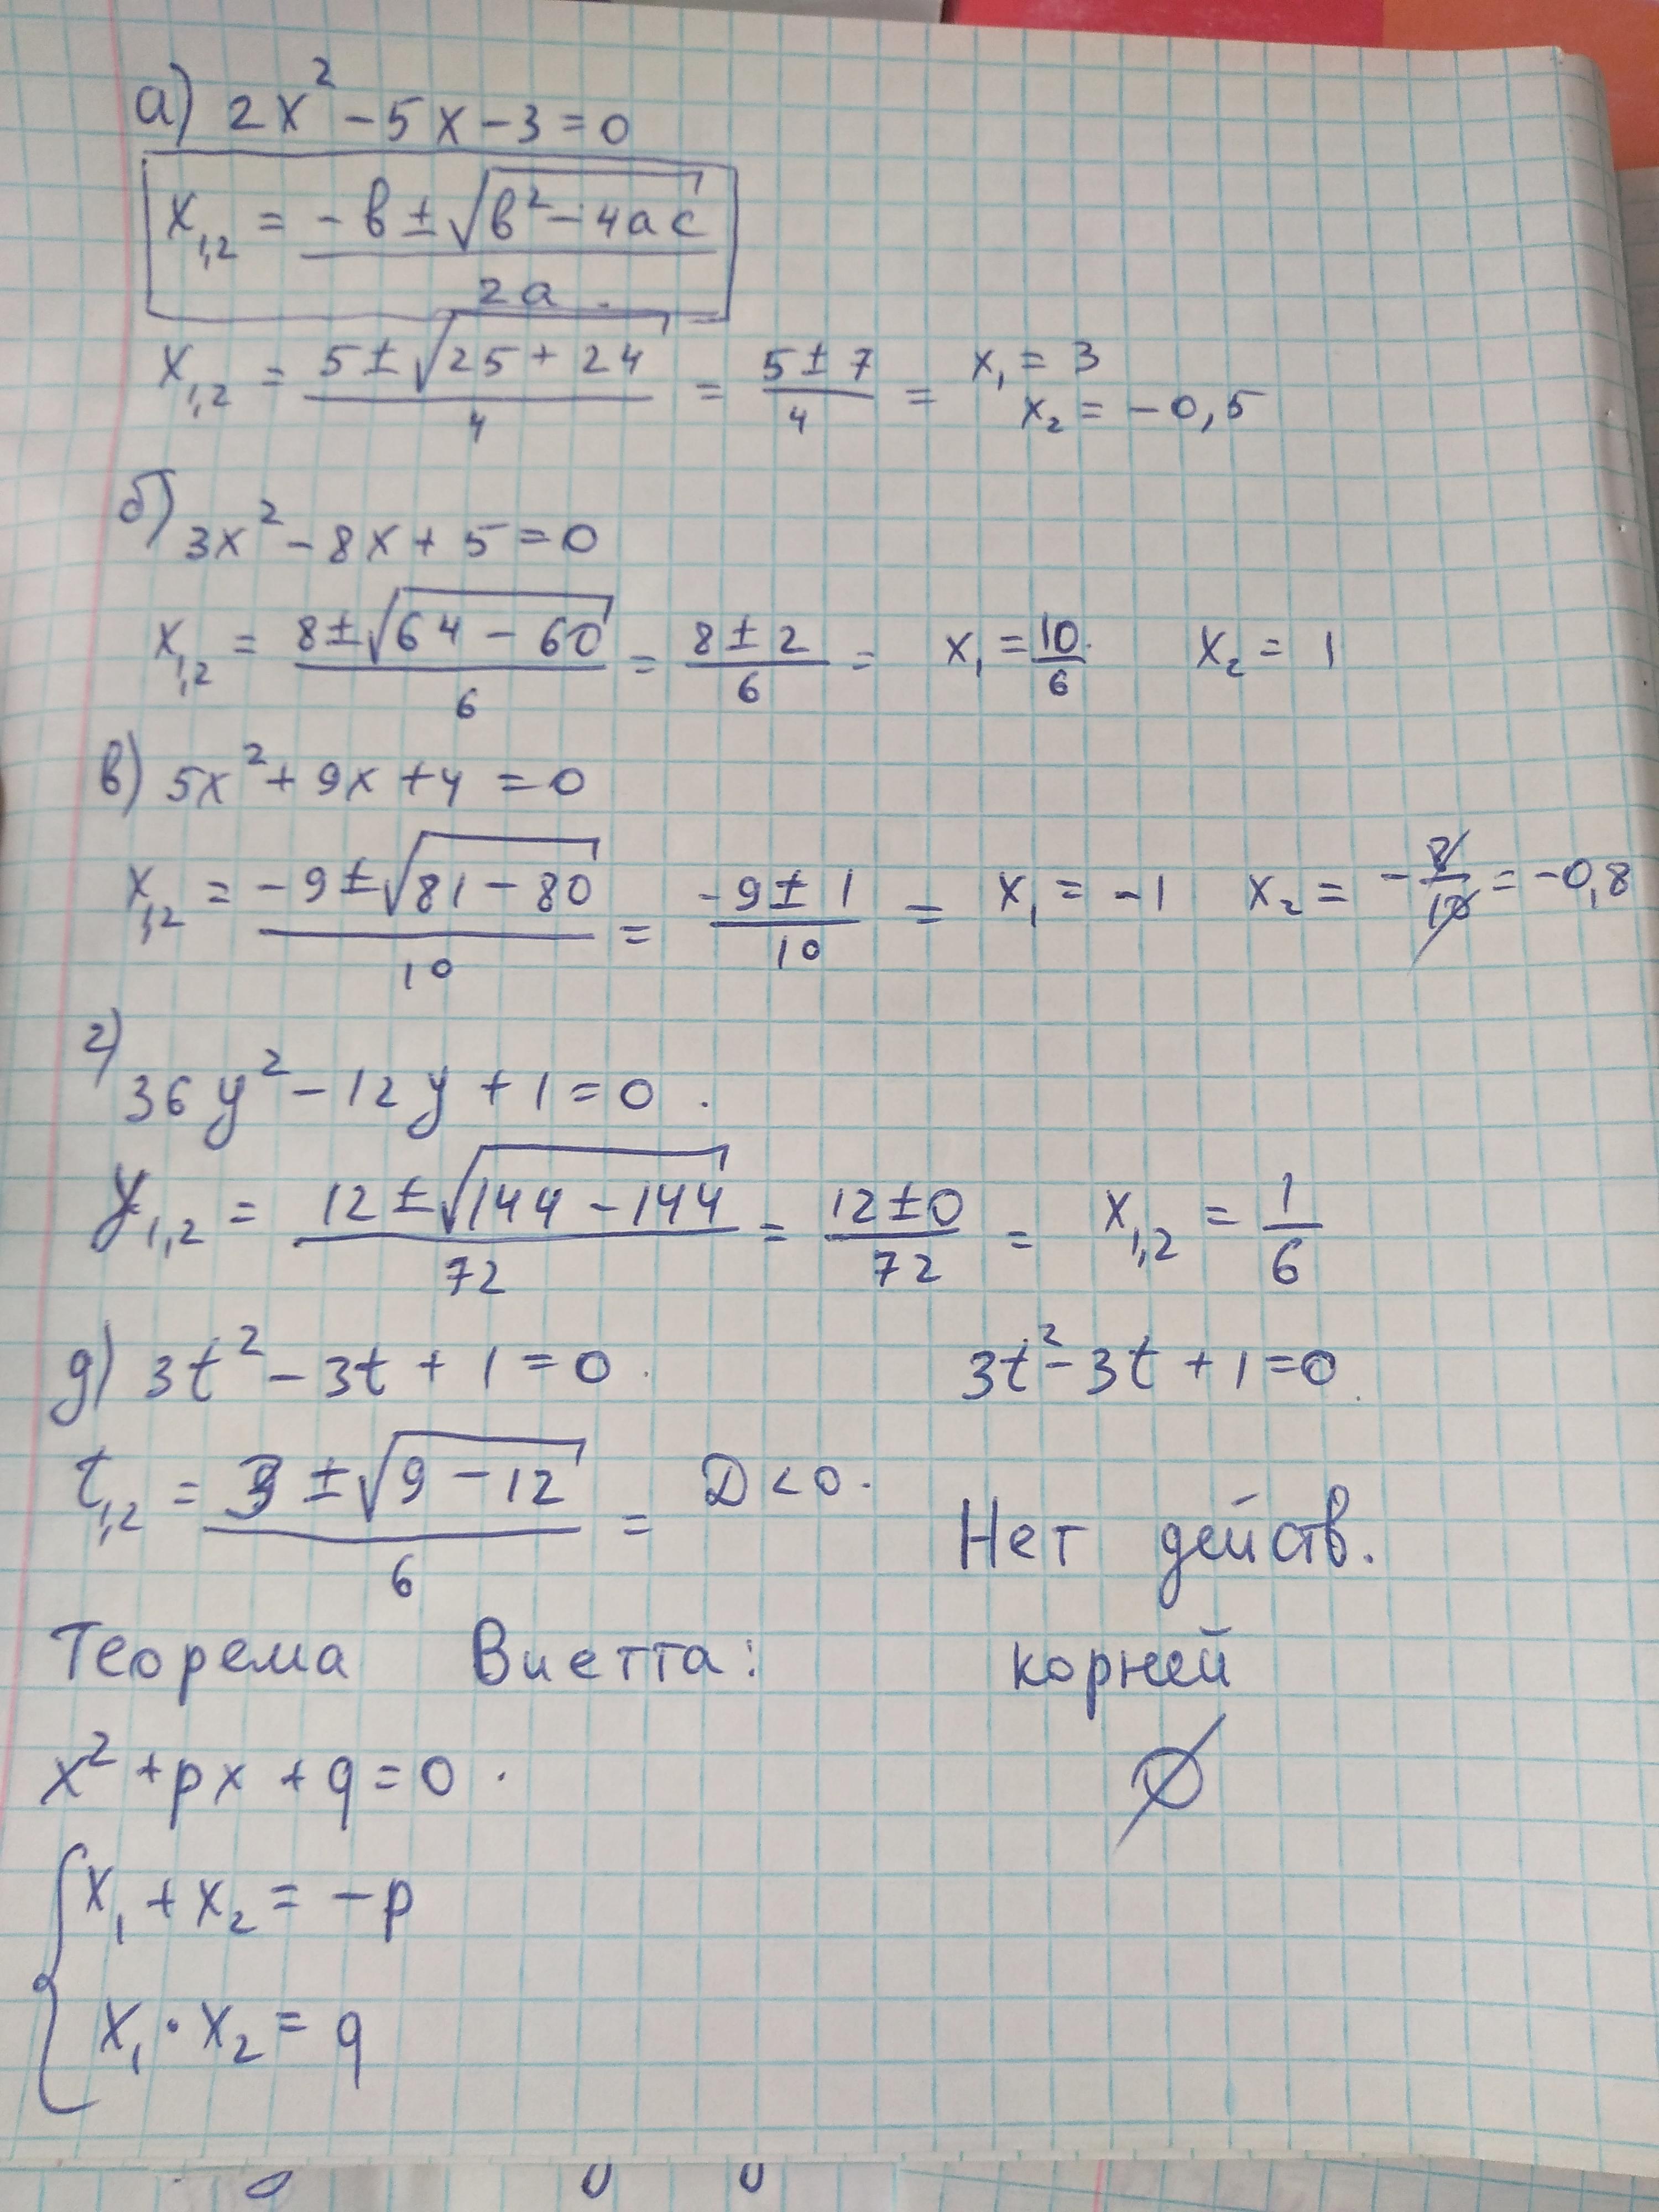 а) 2x² - 5x - 3 = 0
x₁,₂ = (-в ± √(в² - 4ac)) / 2a
x₁,₂ = (5 ± √(25 + 24)) / 4 = (5 ± 7) / 4 = x₁ = 3
x₂ = -0,5
б) 3x² - 8x + 5 = 0
x₁,₂ = (8 ± √(64 - 60)) / 6 = (8 ± 2) / 6 = x₁ = 10/6 x₂ = 1
в) 5x² + 9x + 4 = 0
x₁,₂ = (-9 ± √(81 - 80)) / 10 = (-9 ± 1) / 10 = x₁ = -1 x₂ = -8/10 = -0,8
г) 36y² - 12y + 1 = 0.
y₁,₂ = (12 ± √(144 - 144)) / 72 = (12 ± 0) / 72 = x₁,₂ = 1/6
д) 3t² - 3t + 1 = 0. 3t² - 3t + 1 = 0.
t₁,₂ = (3 ± √(9 - 12)) / 6 = D < 0.
Нет действ.
корней
∅
Теорема Виетта:
x² + px + q = 0.
{ x₁ + x₂ = -p
x₁ · x₂ = q